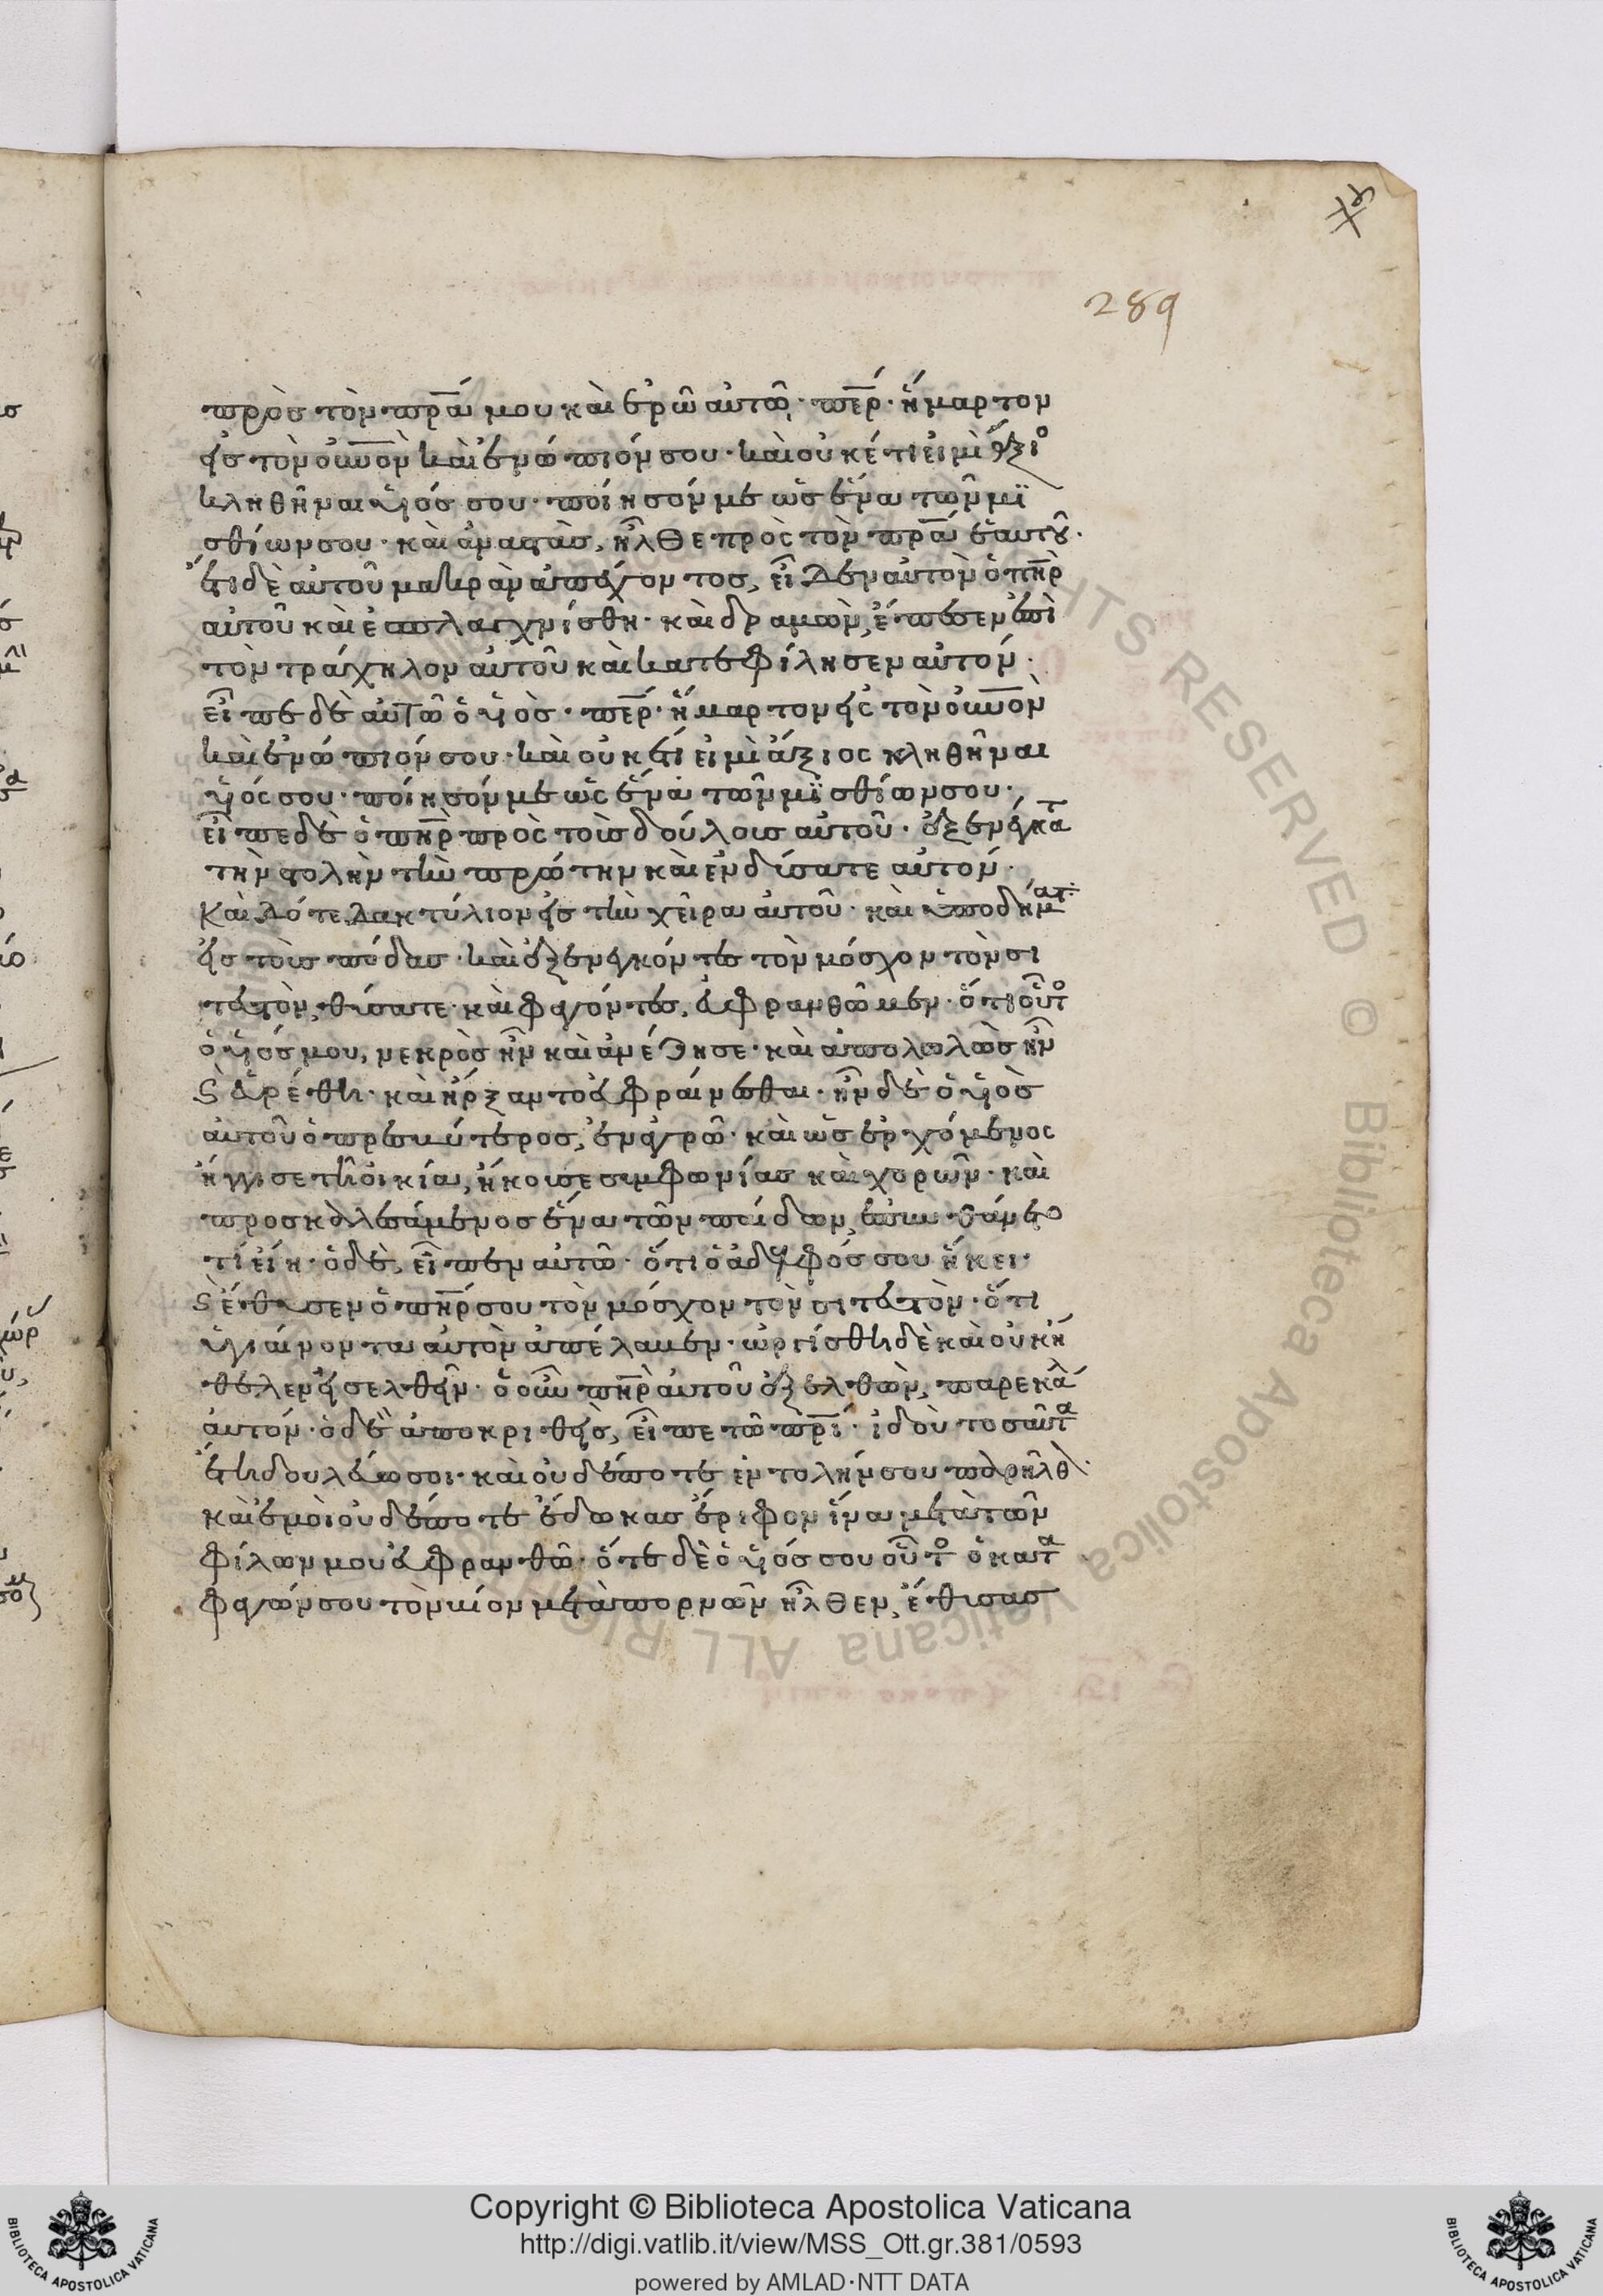 289
πρὸς τὸν πρᾱ́ μου καὶ ἐρῶ αὐτῶ· περ̄́· ἥμαρτον
εἰς τὸν οὐν̄ον καὶ ἐνώπιόν σου· καὶ οὐκέτι εἰμὶ ἄξιο
κληθῆναι υἱός σου· ποίησόν με ὡς ἕνα τῶν μϊ
σθίων σου· καὶ ἀναστὰς, ἦλθε πρὸς τὸν πρ̄α ἑαυτοῦ·
ἔτι δὲ αὐτοῦ μακρὰν ἀπέχοντος, εἶδεν αὐτὸν ὁ πη̄ρ
αὐτοῦ καὶ ἐσπλαγχνίσθη· καὶ δραμὼν, ἔπεσεν ἐπὶ
τὸν τράχηλον αὐτοῦ καὶ κατεφίλησεν αὐτόν·
εἶπε δὲ αὐτῶ ὁ υἱὸς· περ̄́· ἥμαρτον εἰς τὸν οὐν̄ον
καὶ ἐνώπιόν σου· καὶ οὐκέτι εἰμὶ ἄξιος κληθῆναι
υἱός σου· ποίησόν με ὡς ἕνα τῶν μϊσθίων σου·
εἶπε δὲ ὁ πη̄ρ πρὸς τοὺς δούλους αὐτοῦ· ἐξενέγκατ
τὴν στολὴν τὴν πρώτην καὶ ἐνδύσατε αὐτόν·
Καὶ δότε δακτύλιον εἰς τὴν χεῖρα αὐτοῦ· καὶ ὑποδήματ
εἰς τοὺς πόδας· καὶ ἐξενεγκόντες τὸν μόσχον τὸν σι
τευτὸν, θύσατε· καὶ φαγόντες, εὐφρανθῶμεν· ὅτι οὗτο
ὁ υἱός μου, νεκρὸς ἦν καὶ ἀνέζησε· καὶ ἀπολωλὼς ἦν
ϛ εὑρέθη· καὶ ἤρξαντο εὐφραίνεσθαι· ἦν δὲ ὁ υἱὸς
αὐτοῦ ὁ πρεσβύτερος, ἐν ἀγρῶ· καὶ ὡς ἐρχόμενος
ἤγγισε τῆ οἰκία, ἤκουσε συμφωνίας καὶ χορῶν· καὶ
προσκαλεσάμενος ἕνα τῶν παίδων, ἐπυνθάνετο
τί εἴη· ὁ δὲ, εἶπεν αὐτῶ· ὅτι ὁ ἀδελφός σου ἥκει·
ϛ ἔθυσεν ὁ πη̄ρ σου τὸν μόσχον τὸν σιτευτὸν· ὅτι
ὑγιαίνοντα αὐτὸν ἀπέλαβεν· ὠργίσθη δὲ καὶ οὐκ ἤ
θελεν εἰσελθεῖν· ὁ οὖν πη̄ρ αὐτοῦ ἐξελθὼν, παρεκάλ
αὐτόν· ὁ δὲ ἀποκριθεὶς, εἶπε τῶ πρ̄ί· ἰδοὺ τοσαῦτα
ἔτη δουλεύω σοι· καὶ οὐδέποτε ἐντολήν σου παρῆλθ
καὶ ἐμοὶ οὐδέποτε ἔδωκας ἔριφον ἵνα μετὰ τῶν
φίλων μου εὐφρανθῶ· ὅτε δὲ ὁ υἱός σου οὗτο ὁ κατα
φαγών σου τὸν βίον μετὰ πορνῶν ἦλθεν, ἔθυσας
Copyright © Biblioteca Apostolica Vaticana
http://digi.vatlib.it/view/MSS_Ott.gr.381/0593
powered by AMLAD·NTT DATA
BIBLIOTECA APOSTOLICA VATICANA
BIBLIOTECA APOSTOLICA VATICANA
Biblioteca Apostolica Vaticana ALL RIGHTS RESERVED ©